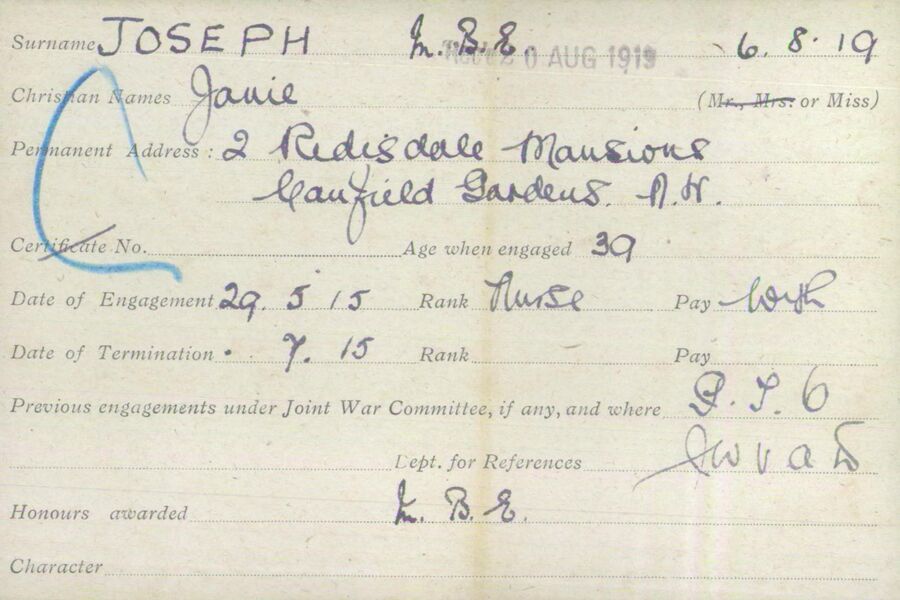 Surname JOSEPH M.B.E. 6.8.19
Rec'd 20 AUG 1919
Christian Names Janie (Mr., Mrs. or Miss)
Permanent Address: 2 Redisdale Mansions
Canfield Gardens. N.W.
Certificate No. Age when engaged 39
Date of Engagement 29. 5 15 Rank Nurse Pay
Date of Termination . 7. 15 Rank Pay
Previous engagements under Joint War Committee, if any, and where
Dept. for References
Honours awarded M.B.E.
Character